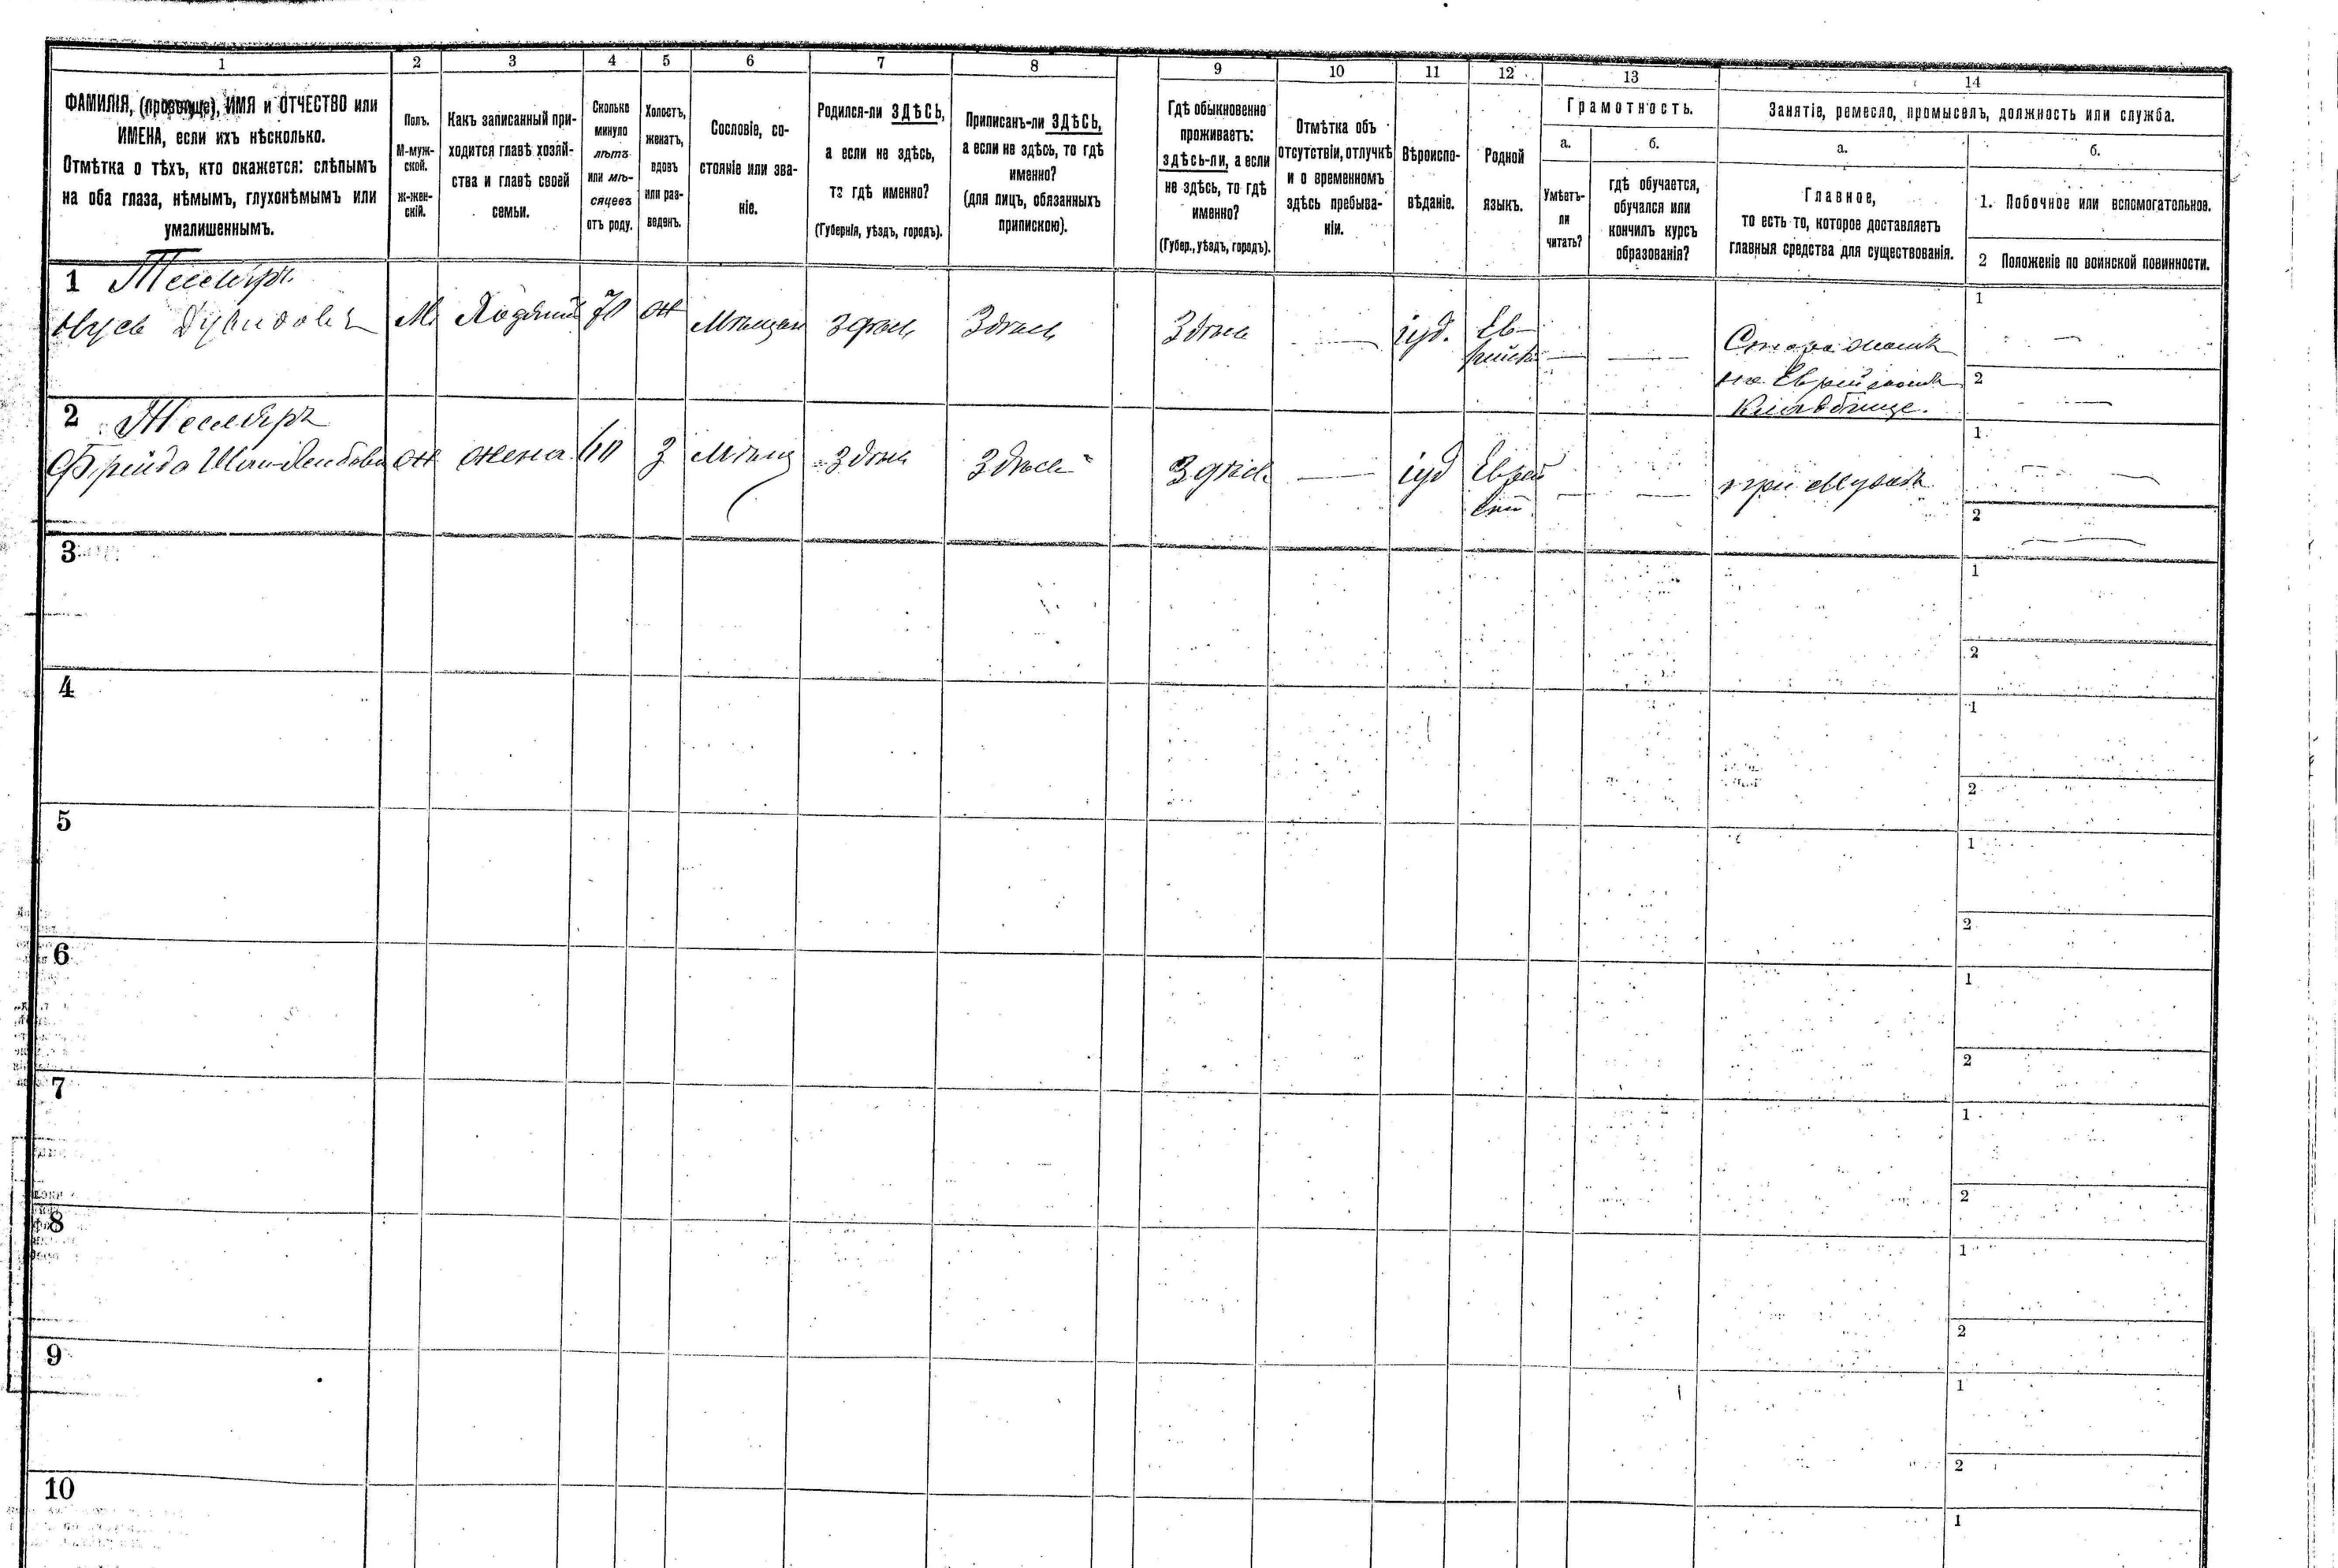 1 2 3 4 5 6 7 8 9 10 11 12 13 14
ФАМИЛІЯ, (прозвище), ИМЯ и ОТЧЕСТВО или
ИМЕНА, если ихъ нѣсколько.
Отмѣтка о тѣхъ, кто окажется: слѣпымъ
на оба глаза, нѣмымъ, глухонѣмымъ или
умалишеннымъ.
Полъ.
М-муж-
ской.
ж-жен-
скій.
Какъ записанный при-
ходится главѣ хозяй-
ства и главѣ своей
семьи.
Сколько
минуло
лѣтъ
или мѣ-
сяцевъ
отъ роду.
Холостъ,
женатъ,
вдовъ
или раз-
веденъ.
Сословіе, со-
стояніе или зва-
ніе.
Родился-ли ЗДѢСЬ,
а если не здѣсь,
то гдѣ именно?
(Губернія, уѣздъ, городъ).
Приписанъ-ли ЗДѢСЬ,
а если не здѣсь, то гдѣ
именно?
(для лицъ, обязанныхъ
припискою).
Гдѣ обыкновенно
проживаетъ:
здѣсь-ли, а если
не здѣсь, то гдѣ
именно?
(Губер., уѣздъ, городъ).
Отмѣтка объ
отсутствіи, отлучкѣ
и о временномъ
здѣсь пребыва-
ніи.
Вѣроиспо-
вѣданіе.
Родной
языкъ.
Грамотность.
а.
Умѣетъ-
ли
читать?
б.
гдѣ обучается,
обучался или
кончилъ курсъ
образованія?
Занятіе, ремесло, промыселъ, должность или служба.
а.
Главное,
то есть то, которое доставляетъ
главныя средства для существованія.
б.
1. Побочное или вспомогательное.
2 Положеніе по воинской повинности.
1
Дувидовъ
М
70
ж
Мѣщан
Здѣсь
Здѣсь
Здѣсь
—
іуд.
Ев-
рейск
—
—
Сторожемъ
на Еврейскомъ
Кладбище.
1
—
2
—
2
Фрейда
ж
жена
60
З
Мѣщ
Здѣсь
Здѣсь
Здѣсь
—
іуд
Еврей
скій
—
—
при мужѣ
1
—
2
—
3
1
2
4
1
2
5
1
2
6
1
2
7
1
2
8
1
2
9
1
2
10
1